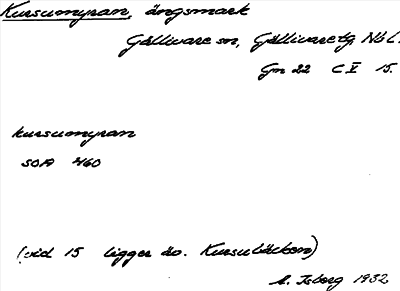 Kursumyran, ängsmark
Gällivare sn, Gällivare tg Nb L.
Gm 22 C V 15.
kursumyran
SOA 460
(vid 15 ligger äv. Kursubäcken)
Isberg 1932